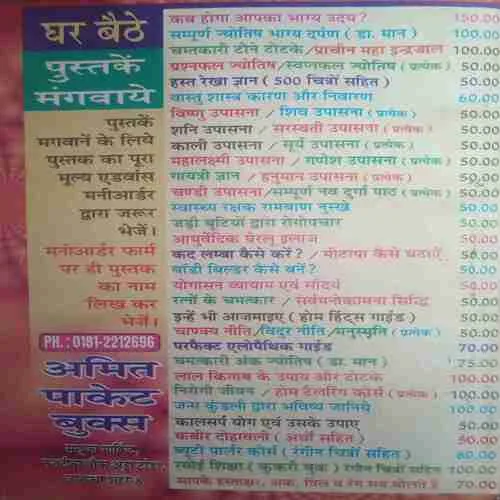 घर बैठे
पुस्तकें
मंगवाये
पुस्तकें
मगवानें के लिये
पुस्तक का पूरा
मूल्य एडवांस
मनीआर्डर
द्वारा जरूर
भेजें।
मनीआर्डर फार्म
पर ही पुस्तक
का नाम
लिख कर
भेजें।
PH.: 0181-2212696
अमित
पाकेट
बुक्स
कब होगा आपका भाग्य उदय? 150.00
सम्पूर्ण ज्योतिष भाग्य दर्पण ( डा. मान ) 100.00
चमत्कारी टोने टोटके/प्राचीन महा इन्द्रजाल 100.00
प्रश्नफल ज्योतिष/स्वप्नफल ज्योतिष ( प्रत्येक ) 50.00
हस्त रेखा ज्ञान ( 500 चित्रों सहित ) 50.00
वास्तु शास्त्र कारण और निवारण 60.00
विष्णु उपासना / शिव उपासना ( प्रत्येक ) 50.00
शनि उपासना / सरस्वती उपासना ( प्रत्येक ) 50.00
काली उपासना / सूर्य उपासना ( प्रत्येक ) 50.00
महालक्ष्मी उपासना / गणेश उपासना ( प्रत्येक ) 50.00
गायत्री ज्ञान / हनुमान उपासना ( प्रत्येक ) 50.00
चण्डी उपासना/सम्पूर्ण नव दुर्गा पाठ ( प्रत्येक ) 50.00
स्वास्थ्य रक्षक रामबाण नुस्खे 50.00
जड़ी बूटियों द्वारा रोगोपचार 50.00
आयुर्वेदिक घरेलू इलाज 50.00
कद लम्बा कैसे करें? / मोटापा कैसे घटाऐं 50.00
बॉडी बिल्डर कैसे बनें? 50.00
योगासन व्यायाम एवं सौंदर्य 50.00
रत्नों के चमत्कार / सर्वमनोकामना सिद्धि 50.00
इन्हें भी आजमाइए ( होम हिंट्स गाईड ) 50.00
चाणक्य नीति/विदुर नीति/मनुस्मृति ( प्रत्येक ) 50.00
परफैक्ट एलोपैथिक गाईड 70.00
चमत्कारी अंक ज्योतिष ( डा. मान ) 75.00
लाल किताब के उपाय और टोटके 100.00
निरोगी जीवन / होम टेलरिंग कोर्स ( प्रत्येक ) 100.00
जन्म कुंडली द्वारा भविष्य जानिये 100.00
कालसर्प योग एवं उसके उपाए 50.00
कबीर दोहावली ( अर्थों सहित ) 50.00
ब्यूटी पार्लर कोर्स ( रंगीन चित्रों सहित ) 60.00
रसोई शिक्षा ( कुकरी बुक ) रंगीन चित्रों सहित 100.00
आपके हस्ताक्षर, अंक, तिल व रंग सब बोलते हैं 70.00